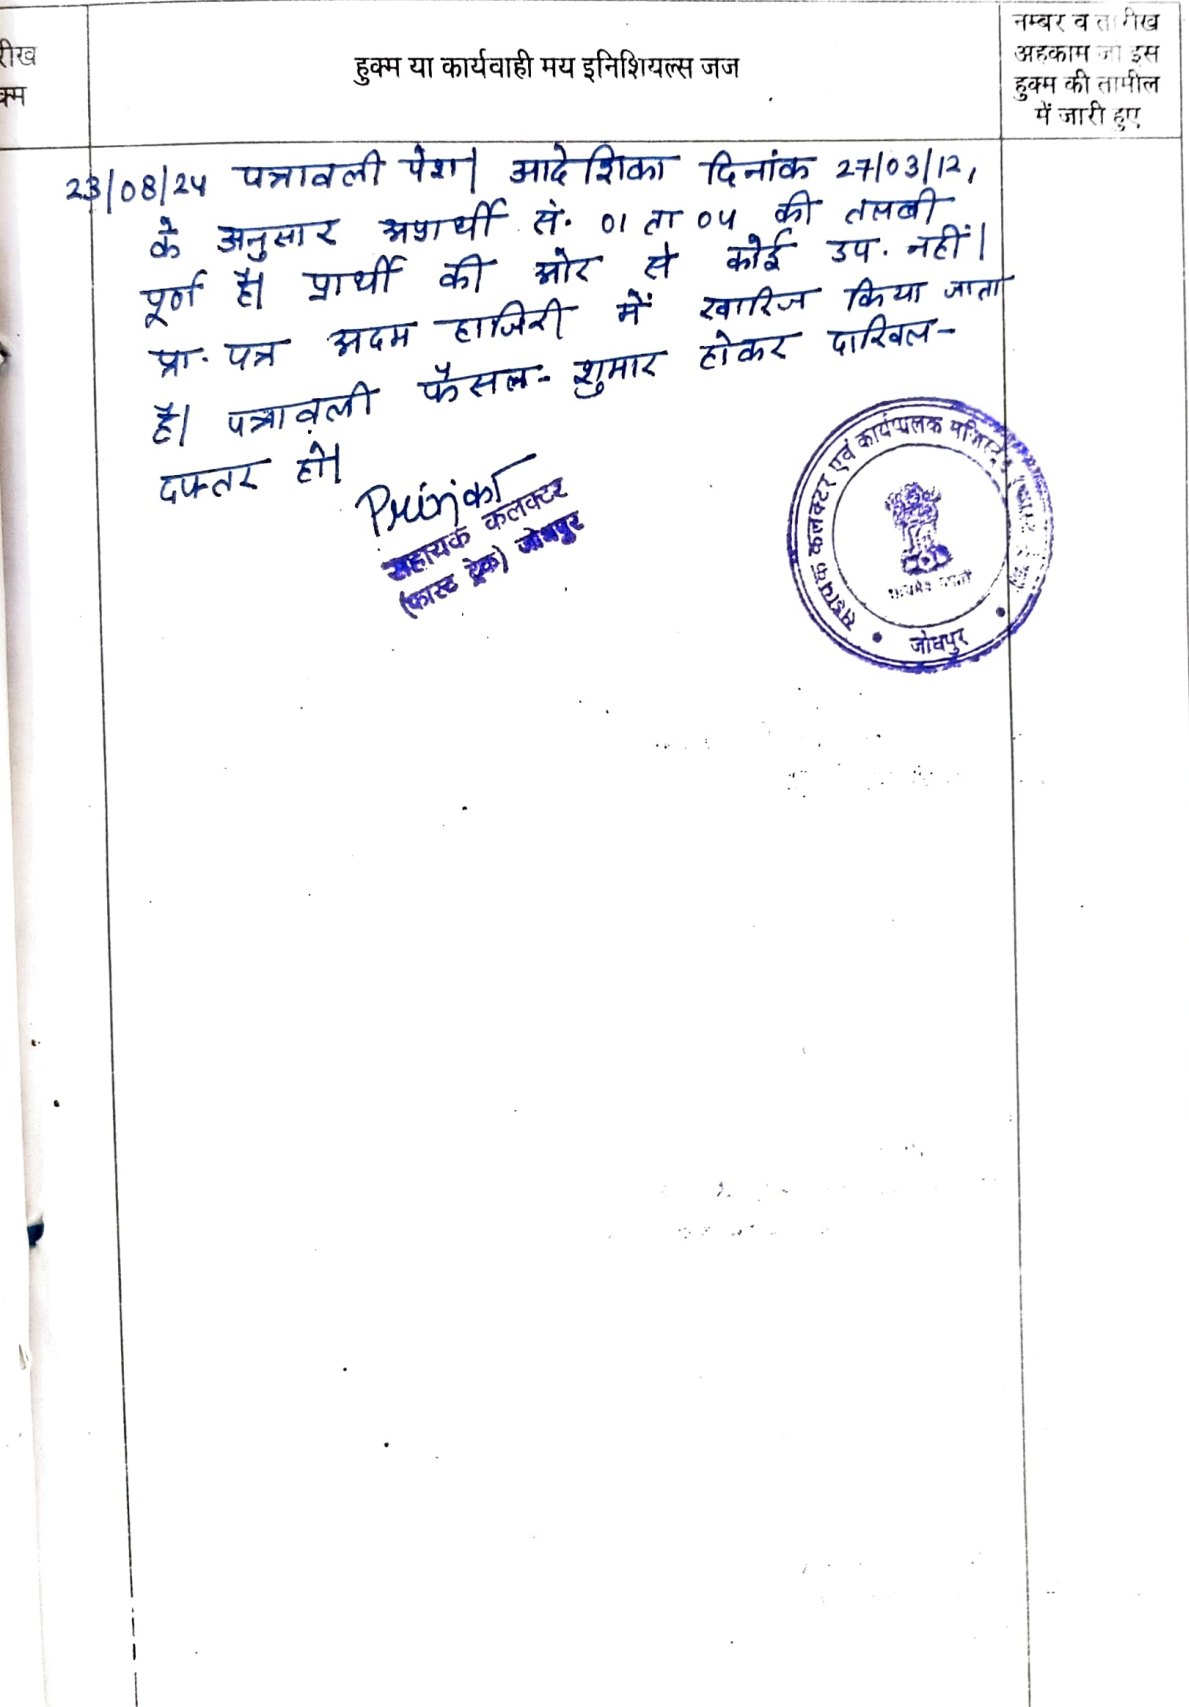 रीख
क्म
हुक्म या कार्यवाही मय इनिशियल्स जज
नम्बर व तारीख
अहकाम जो इस
हुक्म की तामील
में जारी हुए
23/08/24 पत्रावली पेश। आदेशिका दिनांक 27/03/12,
के अनुसार अप्रार्थी सं. 01 ता 04 की तलबी
पूर्ण है। प्रार्थी की ओर से कोई उप. नहीं।
प्रा. पत्र अदम हाजिरी में खारिज किया जाता
है। पत्रावली फैसल-शुमार होकर दाखिल-
दफ्तर हो।
Prinjka
सहायक कलक्टर
(फास्ट ट्रेक) जोधपुर
सहायक कलक्टर एवं कार्यपालक मजिस्ट्रेट
जोधपुर